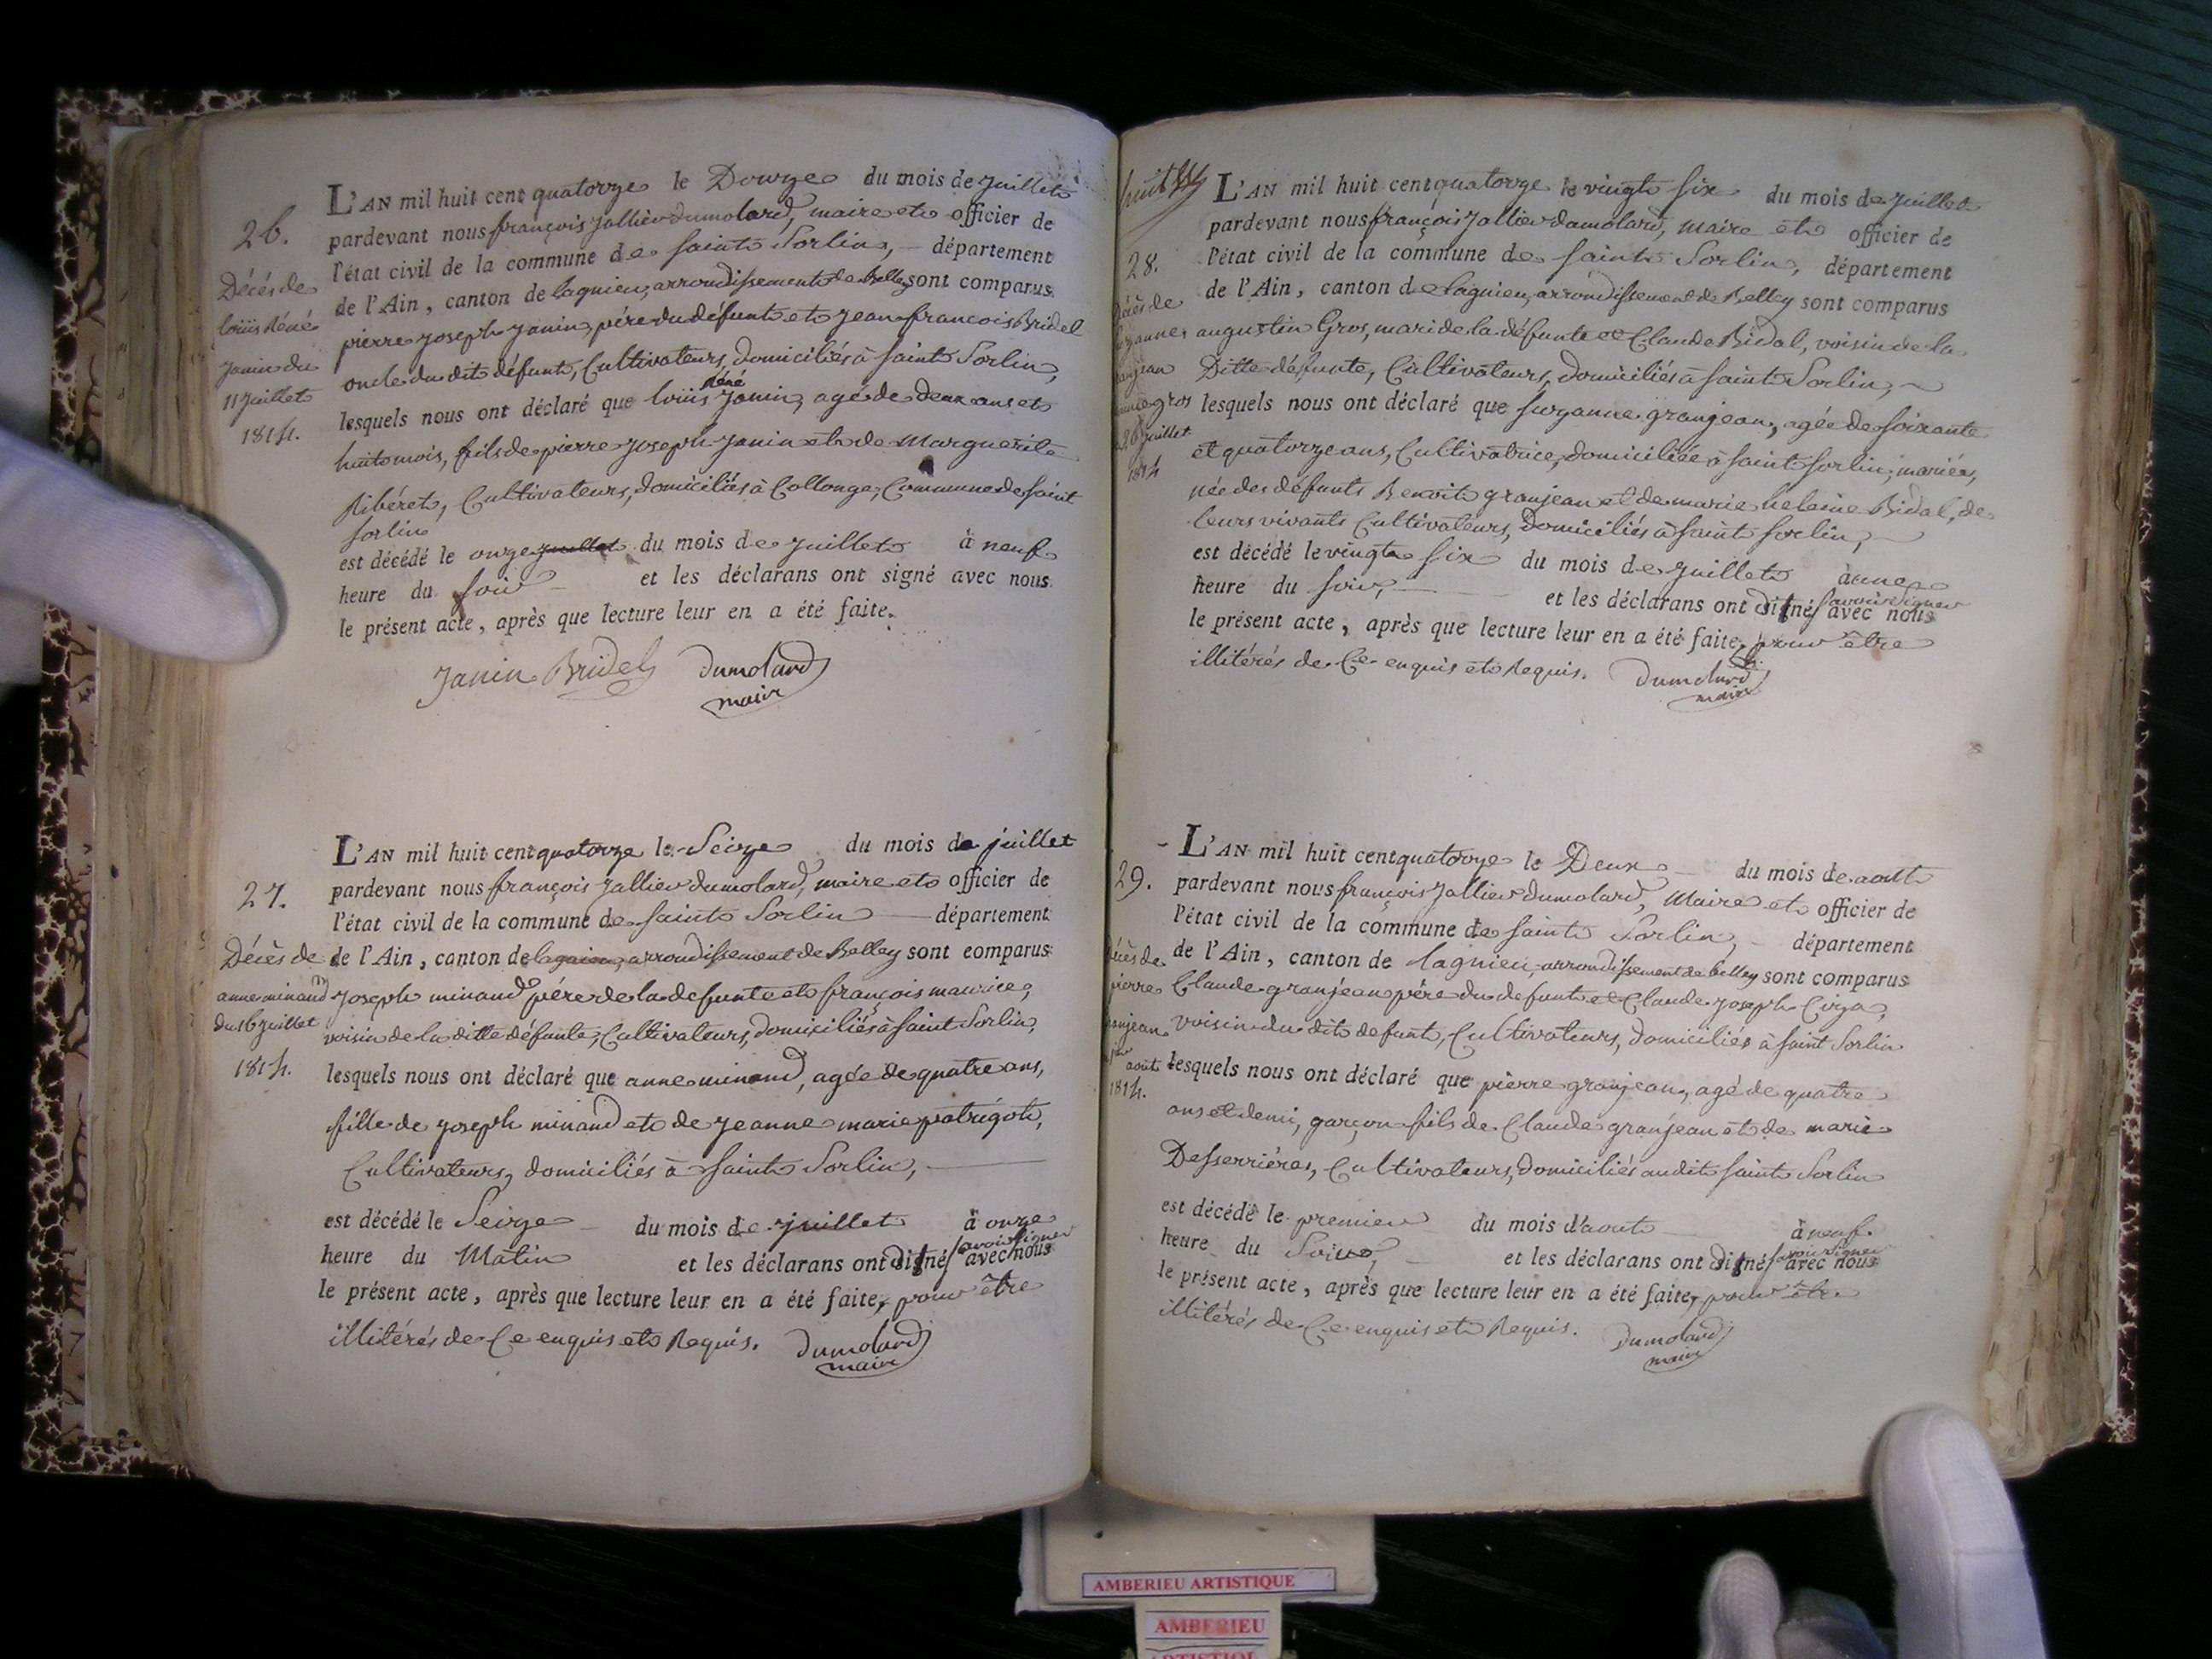 26.
Décés de
loüis Réné
Janin du
11 Juillet
1814.
L'AN mil huit cent quatorze le Douze du mois de juillet
pardevant nous françois Jallier dumolard, maire et officier de
l'état civil de la commune de saint Sorlin, département
de l'Ain, canton de lagnieu, arrondissement de Belley sont comparus
pierre joseph janin, pére du défunt et jean francois Bridel
oncle du dit défunt, Cultivateurs, domiciliés à saint Sorlin,
Réné
lesquels nous ont déclaré que loüis Janin, agé de deux ans et
huit mois, fils de pierre joseph janin et de Marguerite
Ribéret, Cultivateurs, domiciliés à Collonge, Commune de saint
sorlin
est décédé le onze juillet du mois de juillet à neuf
heure du soir et les déclarans ont signé avec nous
le présent acte, après que lecture leur en a été faite.
Janin Bridel Dumolard
maire
27.
Décès de
anne minand
du 16 juillet
1814.
L'AN mil huit cent quatorze le Seize du mois de juillet
pardevant nous françois Jallier dumolard, maire et officier de
l'état civil de la commune de saint Sorlin département
de l'Ain, canton de lagnieu, arrondissement de Belley sont comparus
joseph minand pére de la defunte et françois maurice,
voisin de la ditte défunte, Cultivateurs, domiciliés à saint Sorlin,
lesquels nous ont déclaré que anne minand, agée de quatre ans,
fille de joseph minand et de jeanne marie patrigot,
Cultivateurs, domiciliés à saint Sorlin,
est décédé le Seize du mois de juillet à onze
heure du Matin et les déclarans ont dit né savoir signer avec nous
le présent acte, après que lecture leur en a été faite, pour être
illitérés de Ce enquis et Requis. Dumolard
maire
huit
28.
Décès de
suzanne
granjean
gros
26 juillet
1814
L'AN mil huit cent quatorze le vingt six du mois de juillet
pardevant nous françois Jallier dumolard, maire et officier de
l'état civil de la commune de saint Sorlin, département
de l'Ain, canton de Lagnieu, arrondissement de Belley sont comparus
augustin Gros, mari de la défunte et Claude Bidal, voisin de la
Ditte défunte, Cultivateurs, domiciliés à saint Sorlin,
lesquels nous ont déclaré que suzanne granjean, agée de soixante
et quatorze ans, Cultivatrice, domiciliée à saint sorlin, mariée,
née des défunts Benoit granjean et de marie helaine Bidal, de
leurs vivants Cultivateurs, domiciliés à saint sorlin,
est décédé le vingt six du mois de juillet à une
heure du soir, et les déclarans ont dit né savoir signer avec nous
le présent acte, après que lecture leur en a été faite, pour être
illitérés de Ce enquis et Requis. Dumolard
maire
29.
Décès de
pierre
granjean
août
1814.
L'AN mil huit cent quatorze le Deux du mois de août
pardevant nous françois Jallier dumolard, Maire et officier de
l'état civil de la commune de saint Sorlin, département
de l'Ain, canton de lagnieu, arrondissement de belley sont comparus
Claude granjean pére du defunt et Claude joseph Ciza,
voisin du dit defunt, Cultivateurs, domiciliés à saint Sorlin
lesquels nous ont déclaré que pierre granjean, agé de quatre
ans et demi, garçon fils de Claude granjean et de marie
Desserriéres, Cultivateurs, domiciliés au dit saint Sorlin
est décédé le premier du mois d'août à neuf
heure du Soir, et les déclarans ont dit né savoir signer avec nous
le présent acte, après que lecture leur en a été faite, pour être
illitérés de Ce enquis et Requis. Dumolard
maire
AMBERIEU ARTISTIQUE
AMBERIEU
ARTISTIQUE